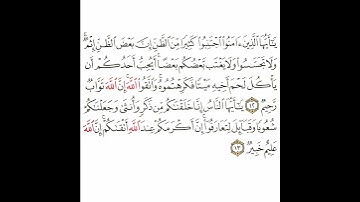 يَٰٓأَيُّهَا ٱلَّذِينَ ءَامَنُوا۟ ٱجْتَنِبُوا۟ كَثِيرًا مِّنَ ٱلظَّنِّ إِنَّ بَعْضَ ٱلظَّنِّ إِثْمٌ ۖ
وَلَا تَجَسَّسُوا۟ وَلَا يَغْتَب بَّعْضُكُم بَعْضًا ۚ أَيُحِبُّ أَحَدُكُمْ أَن
يَأْكُلَ لَحْمَ أَخِيهِ مَيْتًا فَكَرِهْتُمُوهُ ۚ وَٱتَّقُوا۟ ٱللَّهَ ۚ إِنَّ ٱللَّهَ تَوَّابٌ
رَّحِيمٌ ١٢ يَٰٓأَيُّهَا ٱلنَّاسُ إِنَّا خَلَقْنَٰكُم مِّن ذَكَرٍ وَأُنثَىٰ وَجَعَلْنَٰكُمْ
شُعُوبًا وَقَبَآئِلَ لِتَعَارَفُوٓا۟ ۚ إِنَّ أَكْرَمَكُمْ عِندَ ٱللَّهِ أَتْقَىٰكُمْ ۚ إِنَّ ٱللَّهَ
عَلِيمٌ خَبِيرٌ ١٣